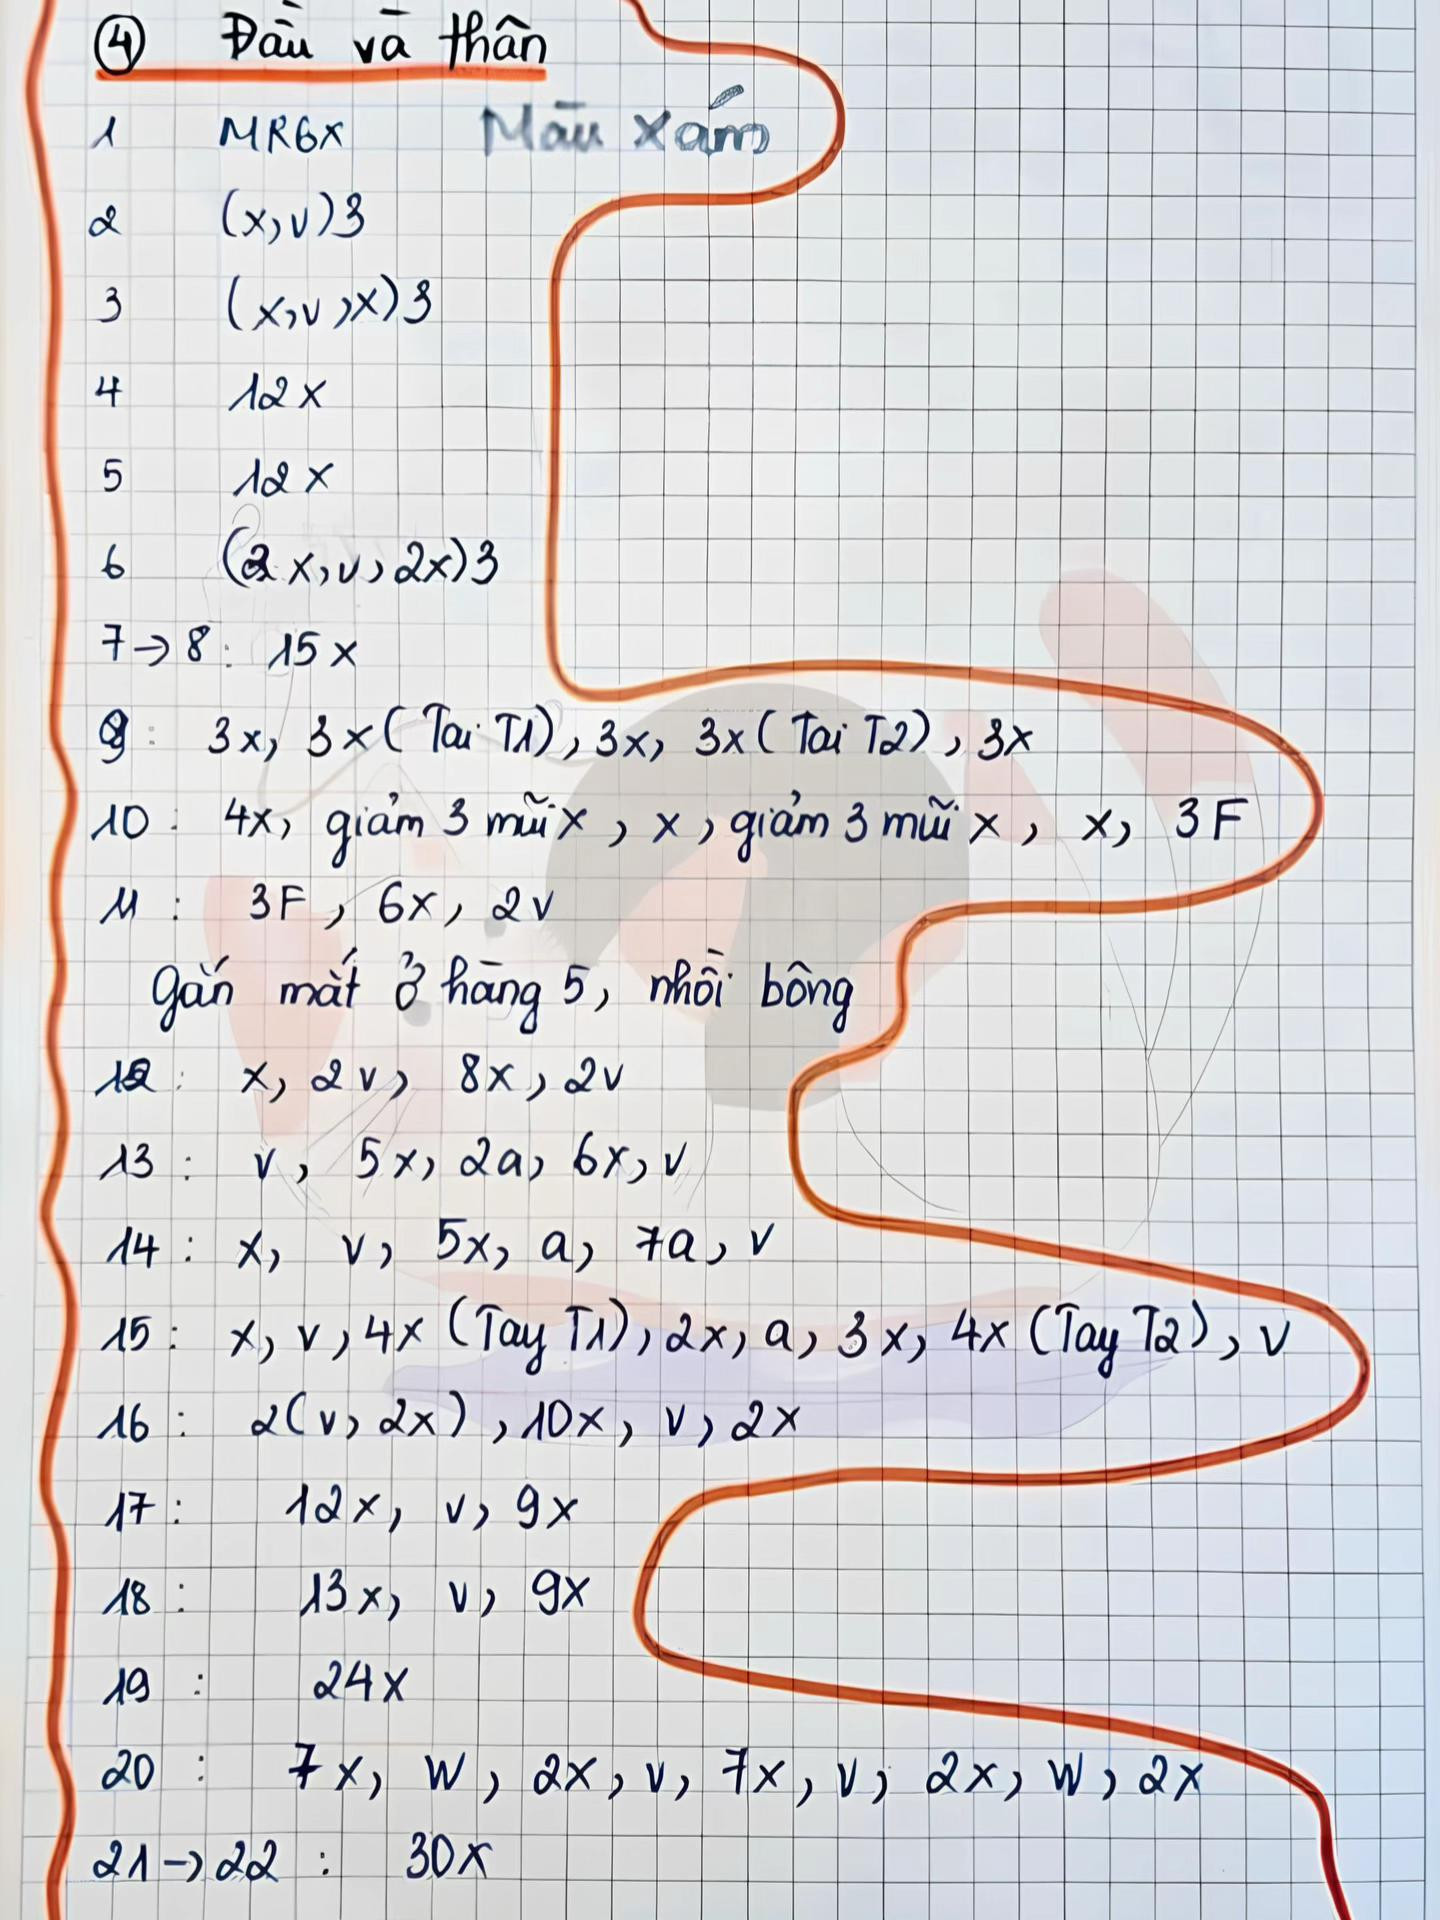 ④ Đầu và thân
1 MR6X Màu xám
2 (x,v)3
3 (x,v,x)3
4 12x
5 12x
6 (2x,v,2x)3
7→8: 15x
9: 3x, 3x (Tai T1), 3x, 3x (Tai T2), 3x
10: 4x, giảm 3 mũi x, x, giảm 3 mũi x, x, 3F
11: 3F, 6x, 2v
gắn mắt ở hàng 5, nhồi bông
12: x, 2v, 8x, 2v
13: v, 5x, 2a, 6x, v
14: x, v, 5x, a, 7a, v
15: x, v, 4x (Tay T1), 2x, a, 3x, 4x (Tay T2), v
16: 2(v, 2x), 10x, v, 2x
17: 12x, v, 9x
18: 13x, v, 9x
19: 24x
20: 7x, w, 2x, v, 7x, v, 2x, w, 2x
21→22: 30x